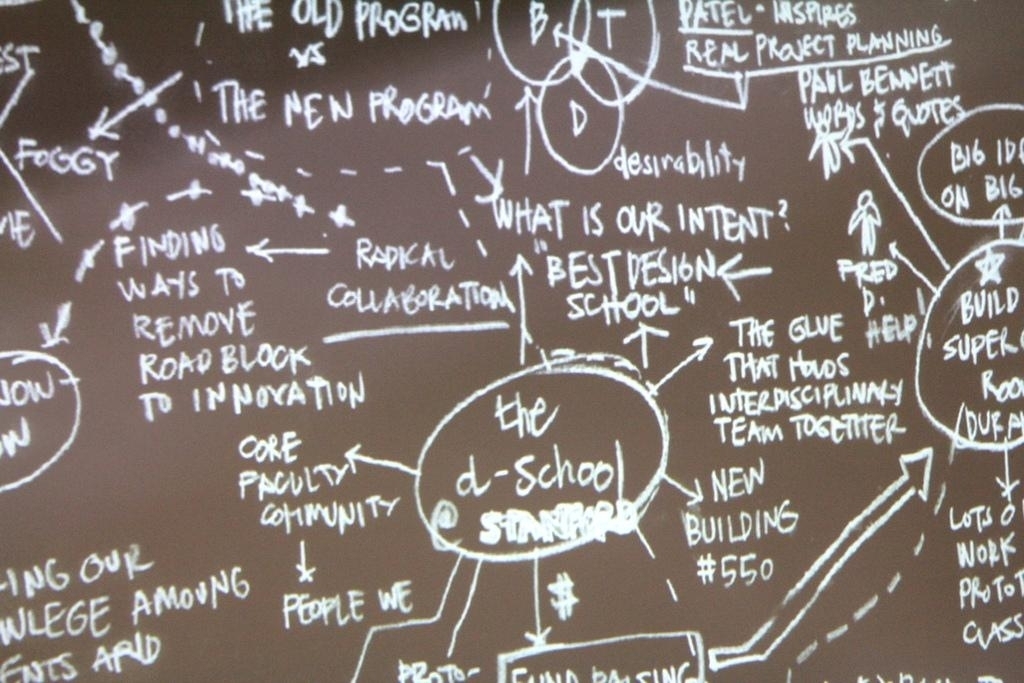 THE OLD PROGRAM
VS
THE NEW PROGRAM
B T
D
desirability
PATEL - INSPIRES
REAL PROJECT PLANNING
PAUL BENNETT
WORDS & QUOTES
FOGGY
BIG
ON BIG
WHAT IS OUR INTENT?
"BEST DESIGN
SCHOOL"
FINDING
WAYS TO
REMOVE
ROAD BLOCK
TO INNOVATION
RADICAL
COLLABORATION
FRED
D.
HELP
BUILD
SUPER
THE GLUE
THAT HOLDS
INTERDISCIPLINARY
TEAM TOGETHER
the
d-School
@ STANFORD
CORE
FACULTY
COMMUNITY
PEOPLE WE
NEW
BUILDING
#550
$
FUND RAISING
PROTO-
LOTS O
WORK
PROTOT
CLASS
-ING OUR
WLEGE AMOUNG
ENTS AND